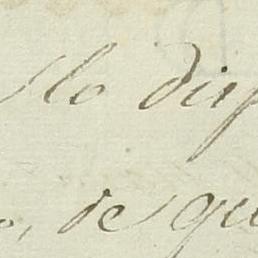 slo disp
o, de qu